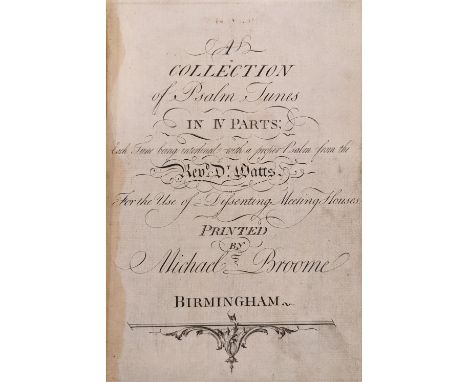 A
COLLECTION
of Psalm Tunes
IN IV PARTS:
Each Tune being interlined with a proper Psalm from the
Revd. Dr. Watts.
For the Use of Dissenting Meeting Houses
PRINTED
BY
Michael Broome
BIRMINGHAM